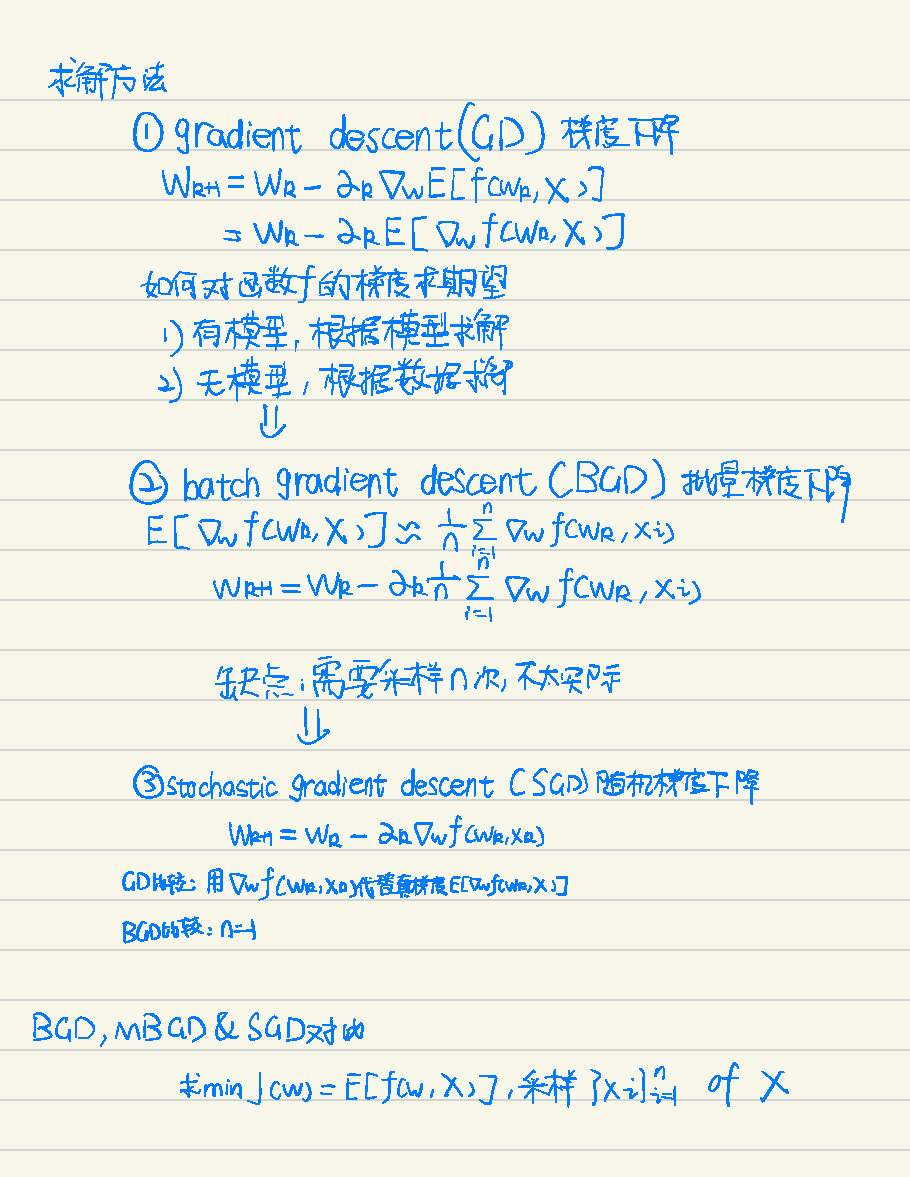 求解方法
① gradient descent (GD) 梯度下降
W_{k+1} = W_k - α_k ∇_w E[f(W_k, X)]
= W_k - α_k E[∇_w f(W_k, X)]
如何对函数f的梯度求期望
1) 有模型，根据模型求解
2) 无模型，根据数据求解
⇓
② batch gradient descent (BGD) 批量梯度下降
E[∇_w f(W_k, X)] ≈ \frac{1}{n} \sum_{i=1}^{n} ∇_w f(W_k, x_i)
W_{k+1} = W_k - α_k \frac{1}{n} \sum_{i=1}^{n} ∇_w f(W_k, x_i)
缺点：需要采样n次，不太实际
⇓
③ stochastic gradient descent (SGD) 随机梯度下降
W_{k+1} = W_k - α_k ∇_w f(W_k, x_k)
GD比较：用∇_w f(W_k, x_k)代替真梯度E[∇_w f(W_k, X)]
BGD比较：n=1
BGD, MBGD & SGD对比
求min J(w) = E[f(w, X)]，采样{x_i}_{i=1}^{n} of X